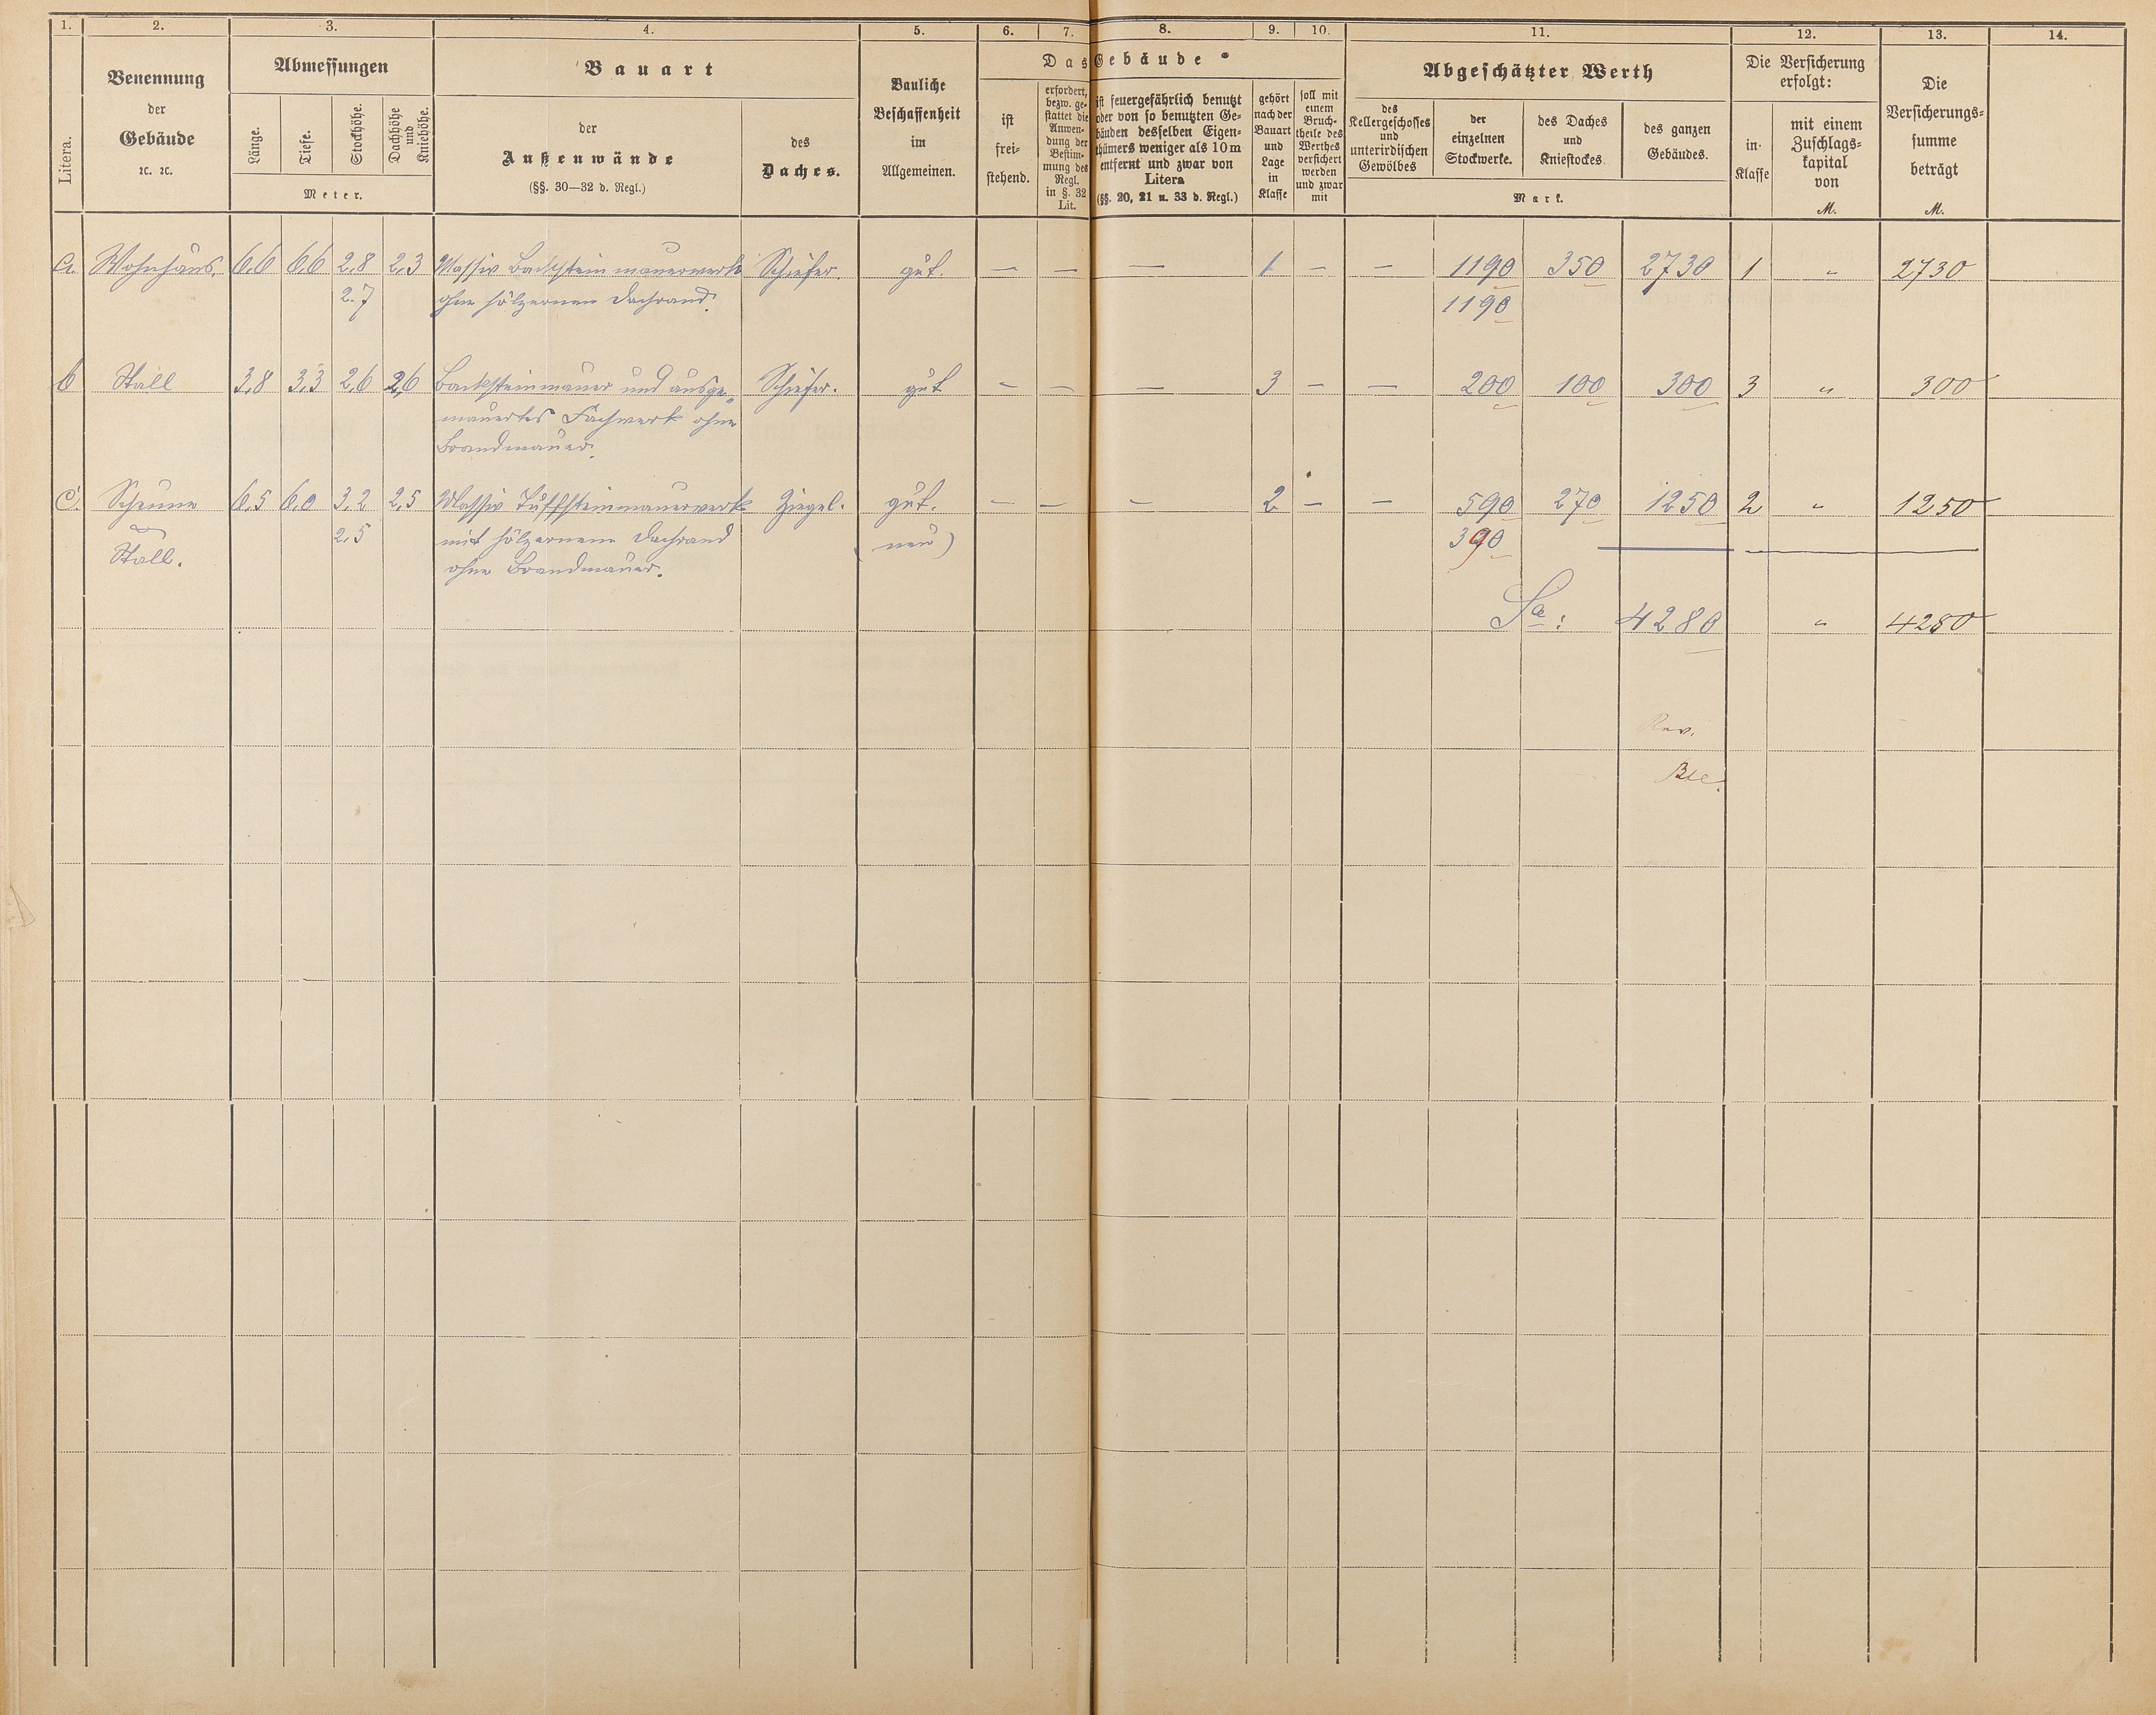 1. 2. 3. 4. 5. 6. 7. 8. 9. 10. 11. 12. 13. 14.
Litera.
Benennung
der
Gebäude
ꝛc. ꝛc.
Abmessungen
Länge.
Tiefe.
Stockhöhe.
Dachhöhe
und
Kniehöhe.
Meter.
Bauart
der
Außenwände
(§§. 30—32 d. Regl.)
des
Daches.
Bauliche
Beschaffenheit
im
Allgemeinen.
Das Gebäude
ist
frei-
stehend.
erfordert,
bezw. ge-
stattet die
Anwen-
dung der
Bestim-
mung des
Regl.
in §. 32
Lit.
ist feuergefährlich benutzt
oder von so benutzten Ge-
bäuden desselben Eigen-
thümers weniger als 10 m
entfernt und zwar von
Litera
(§§. 20, 21 u. 33 d. Regl.)
gehört
nach der
Bauart
und
Lage
in
Klasse
soll mit
einem
Bruch-
theile des
Werthes
versichert
werden
und zwar
mit
Abgeschätzter Werth
des
Kellergeschosses
und
unterirdischen
Gewölbes
der
einzelnen
Stockwerke.
des Daches
und
Kniestockes.
des ganzen
Gebäudes.
Mark.
Die Versicherung
erfolgt:
in
Klasse
mit einem
Zuschlags-
kapital
von
M.
Die
Versicherungs-
summe
beträgt
M.
a. Wohnhaus. 6,6 6,6 2,8 2,3 Massiv Backsteinmauerwerk Schiefer. gut. — — — 1 — — 1190 350 2730 1 " 2730
2.7 ohne hölzernen Dachrand. 1190
b Stall 3,8 3,3 2,6 2,6 Backsteinmauer und ausge- Schiefer. gut — — — 3 — — 200 100 300 3 " 300
mauertes Fachwerk ohne
Brandmauer.
c. Scheune 6,5 6,0 3,2 2,5 Massiv Tuffsteinmauerwerk Ziegel. gut. — — — 2 — — 590 270 1250 2 " 1250
2,5 mit hölzernem Dachrand (neu) 390
Stall. ohne Brandmauer.
Sa: 4280 " 4280
Rev.